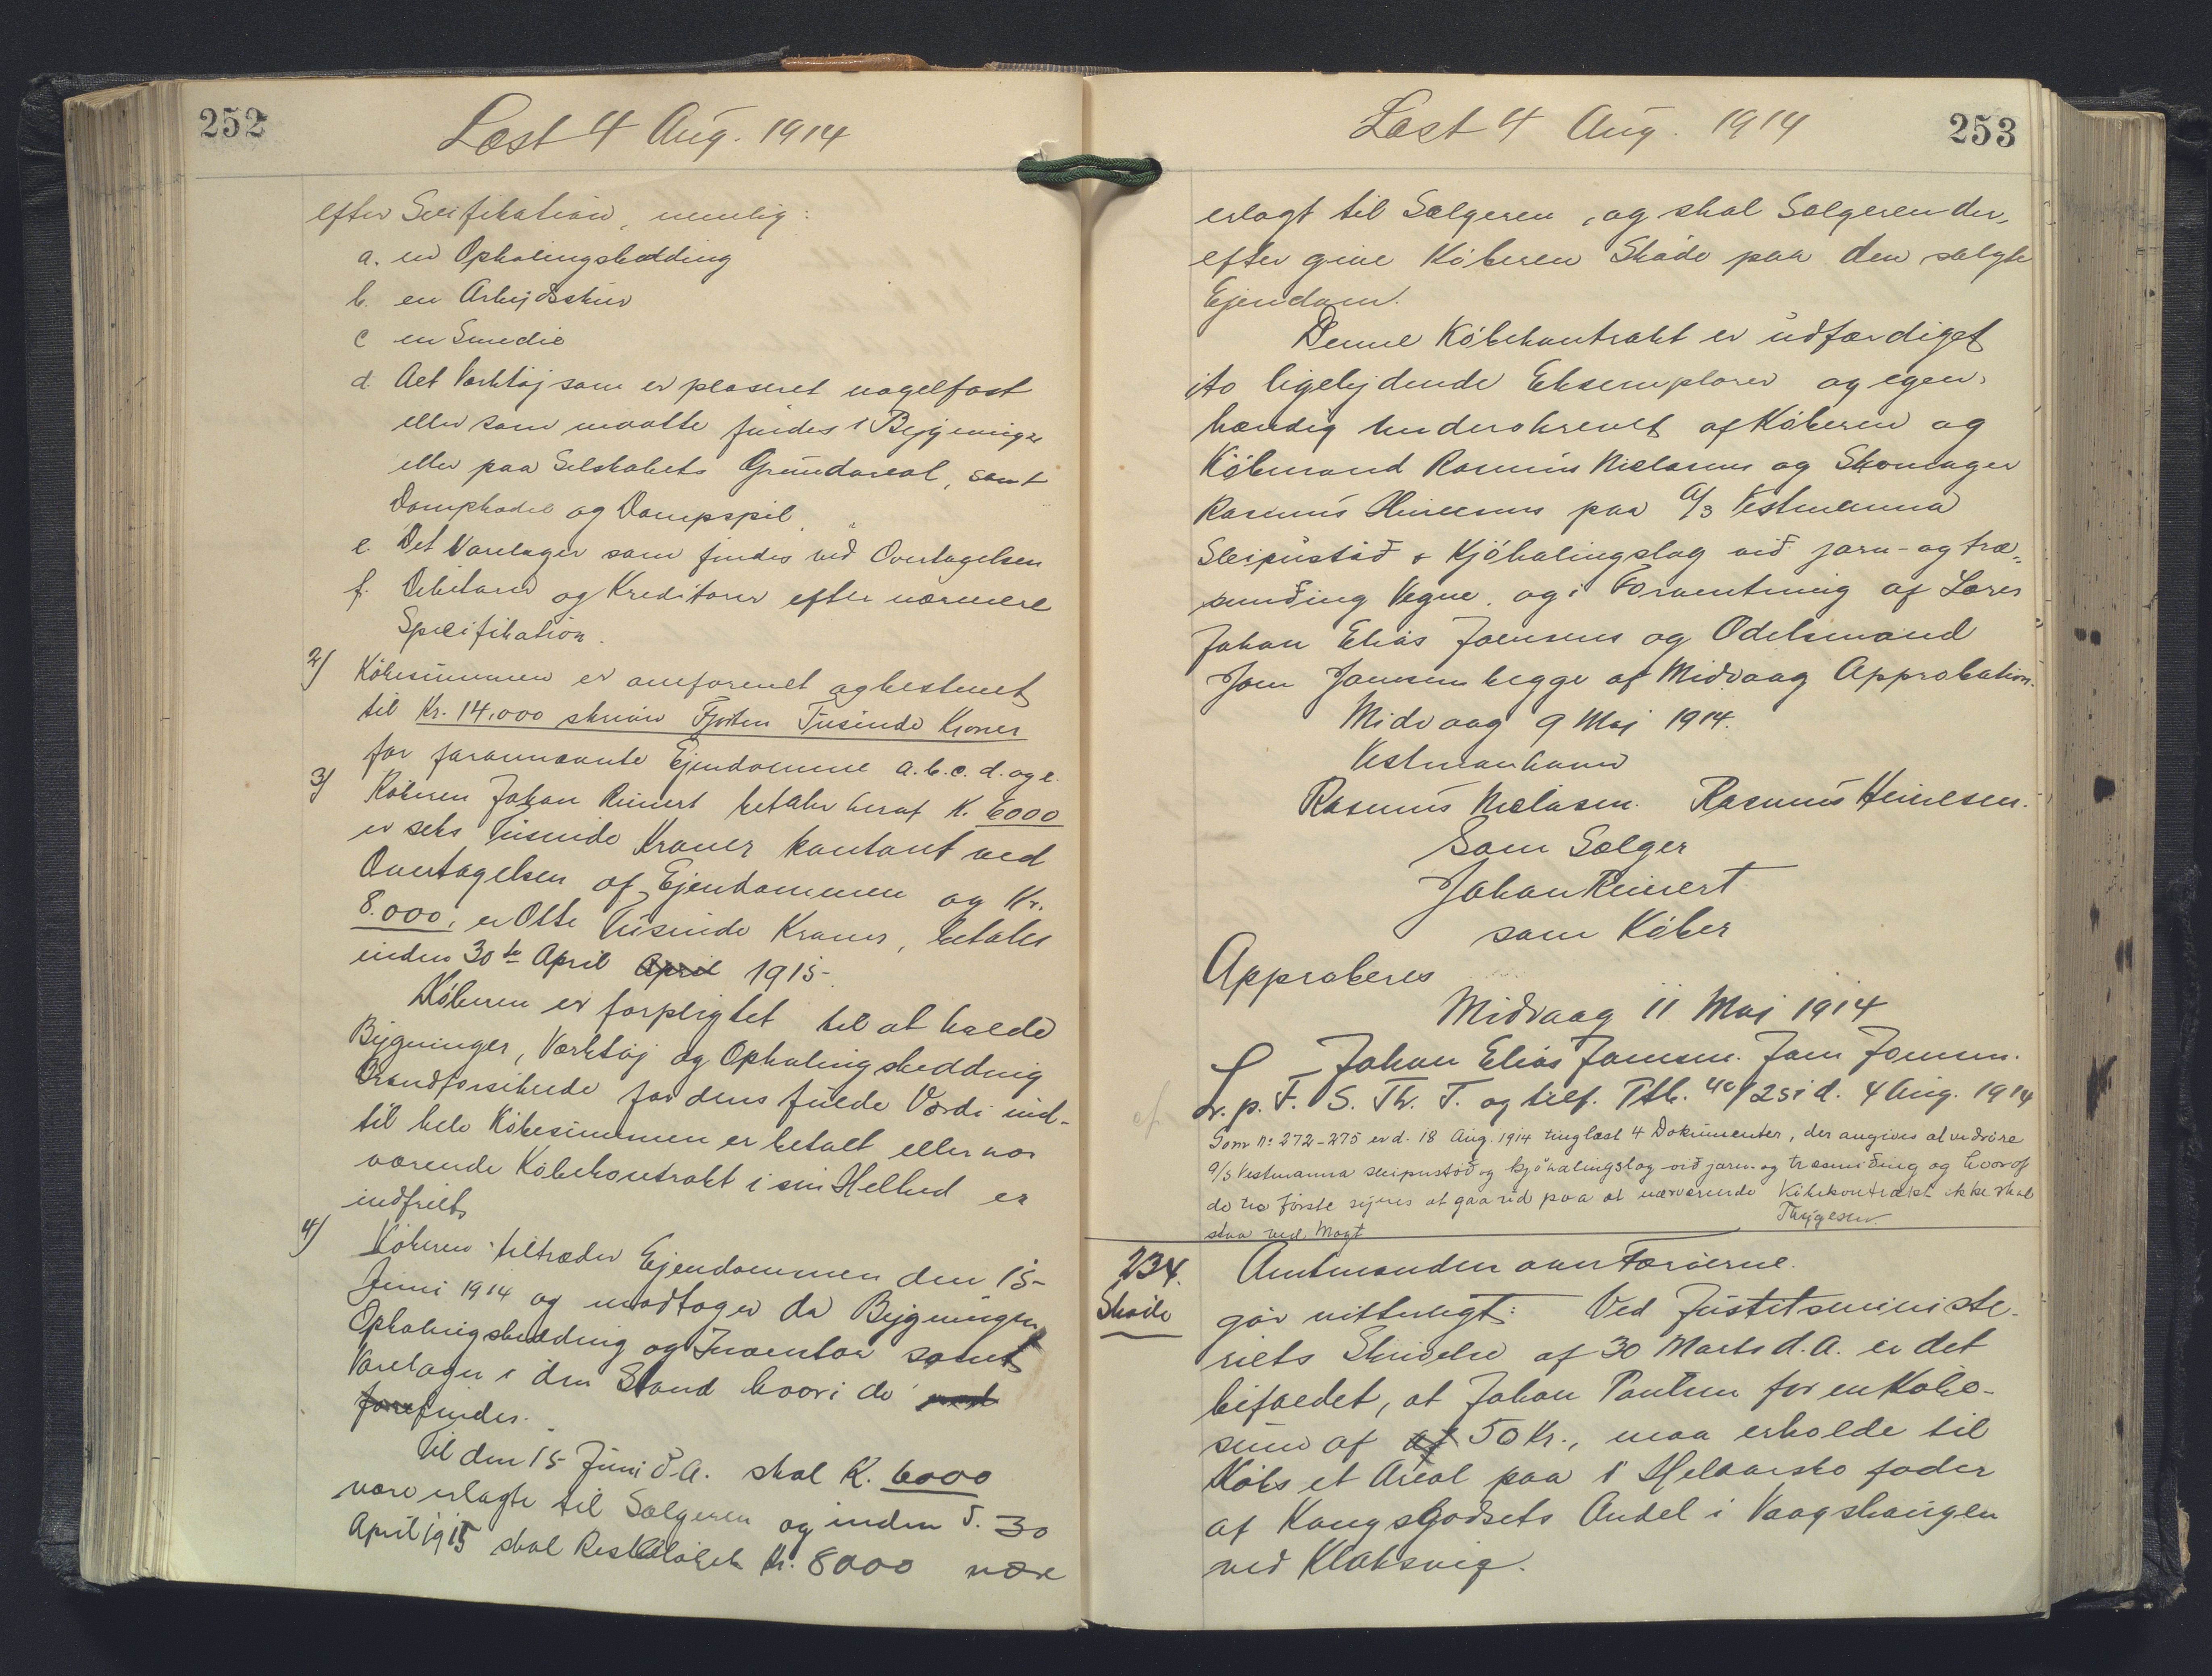 252
Læst 4 Aug. 1914
efter Secifikation, nemlig:
a. en Ophalingsbedding
b. en Arbejdsskur
c en Smedie
d. Alt Værktøj som er placeret nagelfast
eller som maatte findes i Bygninger
eller paa Selskabets Grundareal, samt
Dampkedel og Dampspil.
e. Det Varelager som findes ved Overtagelsen
f. Debitorer og Kreditorer efter nærmere
Specifikation.
2) Købesummen er omforenet og bestemt
til Kr. 14.000 skriver Fjorten Tusinde Kroner
for forannævnte Ejendomme a. b. c. d. og e.
3) Køberen Johan Reinert betaler heraf K. 6000
er seks Tusinde Kroner kontant ved
Overtagelsen af Ejendommen og Kr.
8.000, er Otte Tusinde Kroner, betales
inden 30te April April 1915-
Køberen er forpligtet til at holde
Bygninger, Værktøj og Ophalingsbedding
Brandforsikrede for dens fulde Værdi ind-
til hele Købesummen er betalt eller nær
værende Købekontrakt i sin Helhed er
indfriet.
4) Køberen tiltræder Ejendommen den 15-
Juni 1914 og modtager da Bygningen
Ophalingsbedding og Inventar samt
Varelager i den Stand hvori de
forefindes.
Til den 15 Juni d.A. skal K. 6000
være erlagte til Sælgeren og inden d. 30
April 1915 skal Restbeløbet Kr. 8000 være
Læst 4 Aug. 1914
253
erlagt til Sælgeren, og skal Sælgeren der-
efter give Køberen Skøde paa den solgte
Ejendom.
Denne Købekontrakt er udfærdiget
i to ligelydende Eksemplarer og egen-
hændig underskrevet af Køberen og
Købmand Rasmus Niclasen og Skomager
Rasmus Heinesens paa A/S Vestmanna
Sleipustøð & Kjøhalingslag við jarn- og træ-
smuðing Vegne, og i Forventning af Lærer
Johan Elias Joensens og Odelsmand
Joen Joensen begge af Midvaag Approbation.
Midvaag 9 Maj 1914.
Vestmanhavn
Rasmus Niclasen. Rasmus Heinesen.
Som Sælger
Johan Reinert
som Køber
Approberes
Midvaag 11 Maj 1914
Johan Elias Joensen. Joen Joensen.
Lr. p. F. S. Th. T. og tilf. Ptb. 40/251 d. 4 Aug. 1914
Som No 272-275 er d. 18 Aug. 1914 tinglæst 4 Dokumenter, der angives at vedrøre
A/S Vestmanna sleipustøð og kjøhalingslag við jarn- og træsmiðing og hvoraf
de tre første synes at gaa ud paa at nærværende Købekontrakt ikke skal
staa ved Magt
Thygesen.
234. Amtmanden over Færøerne.
Skøde gør vitterligt: Ved Justitsministe-
riets Skrivelse af 30 Marts d.A. er det
bifaldet, at Johan Poulsen for en Købe-
sum af af 50 Kr., maa erholde til
Købs et Areal paa 1 Helaarsko foder
af Kongsgodsets Andel i Vaagshaugen
ved Klaksvig.